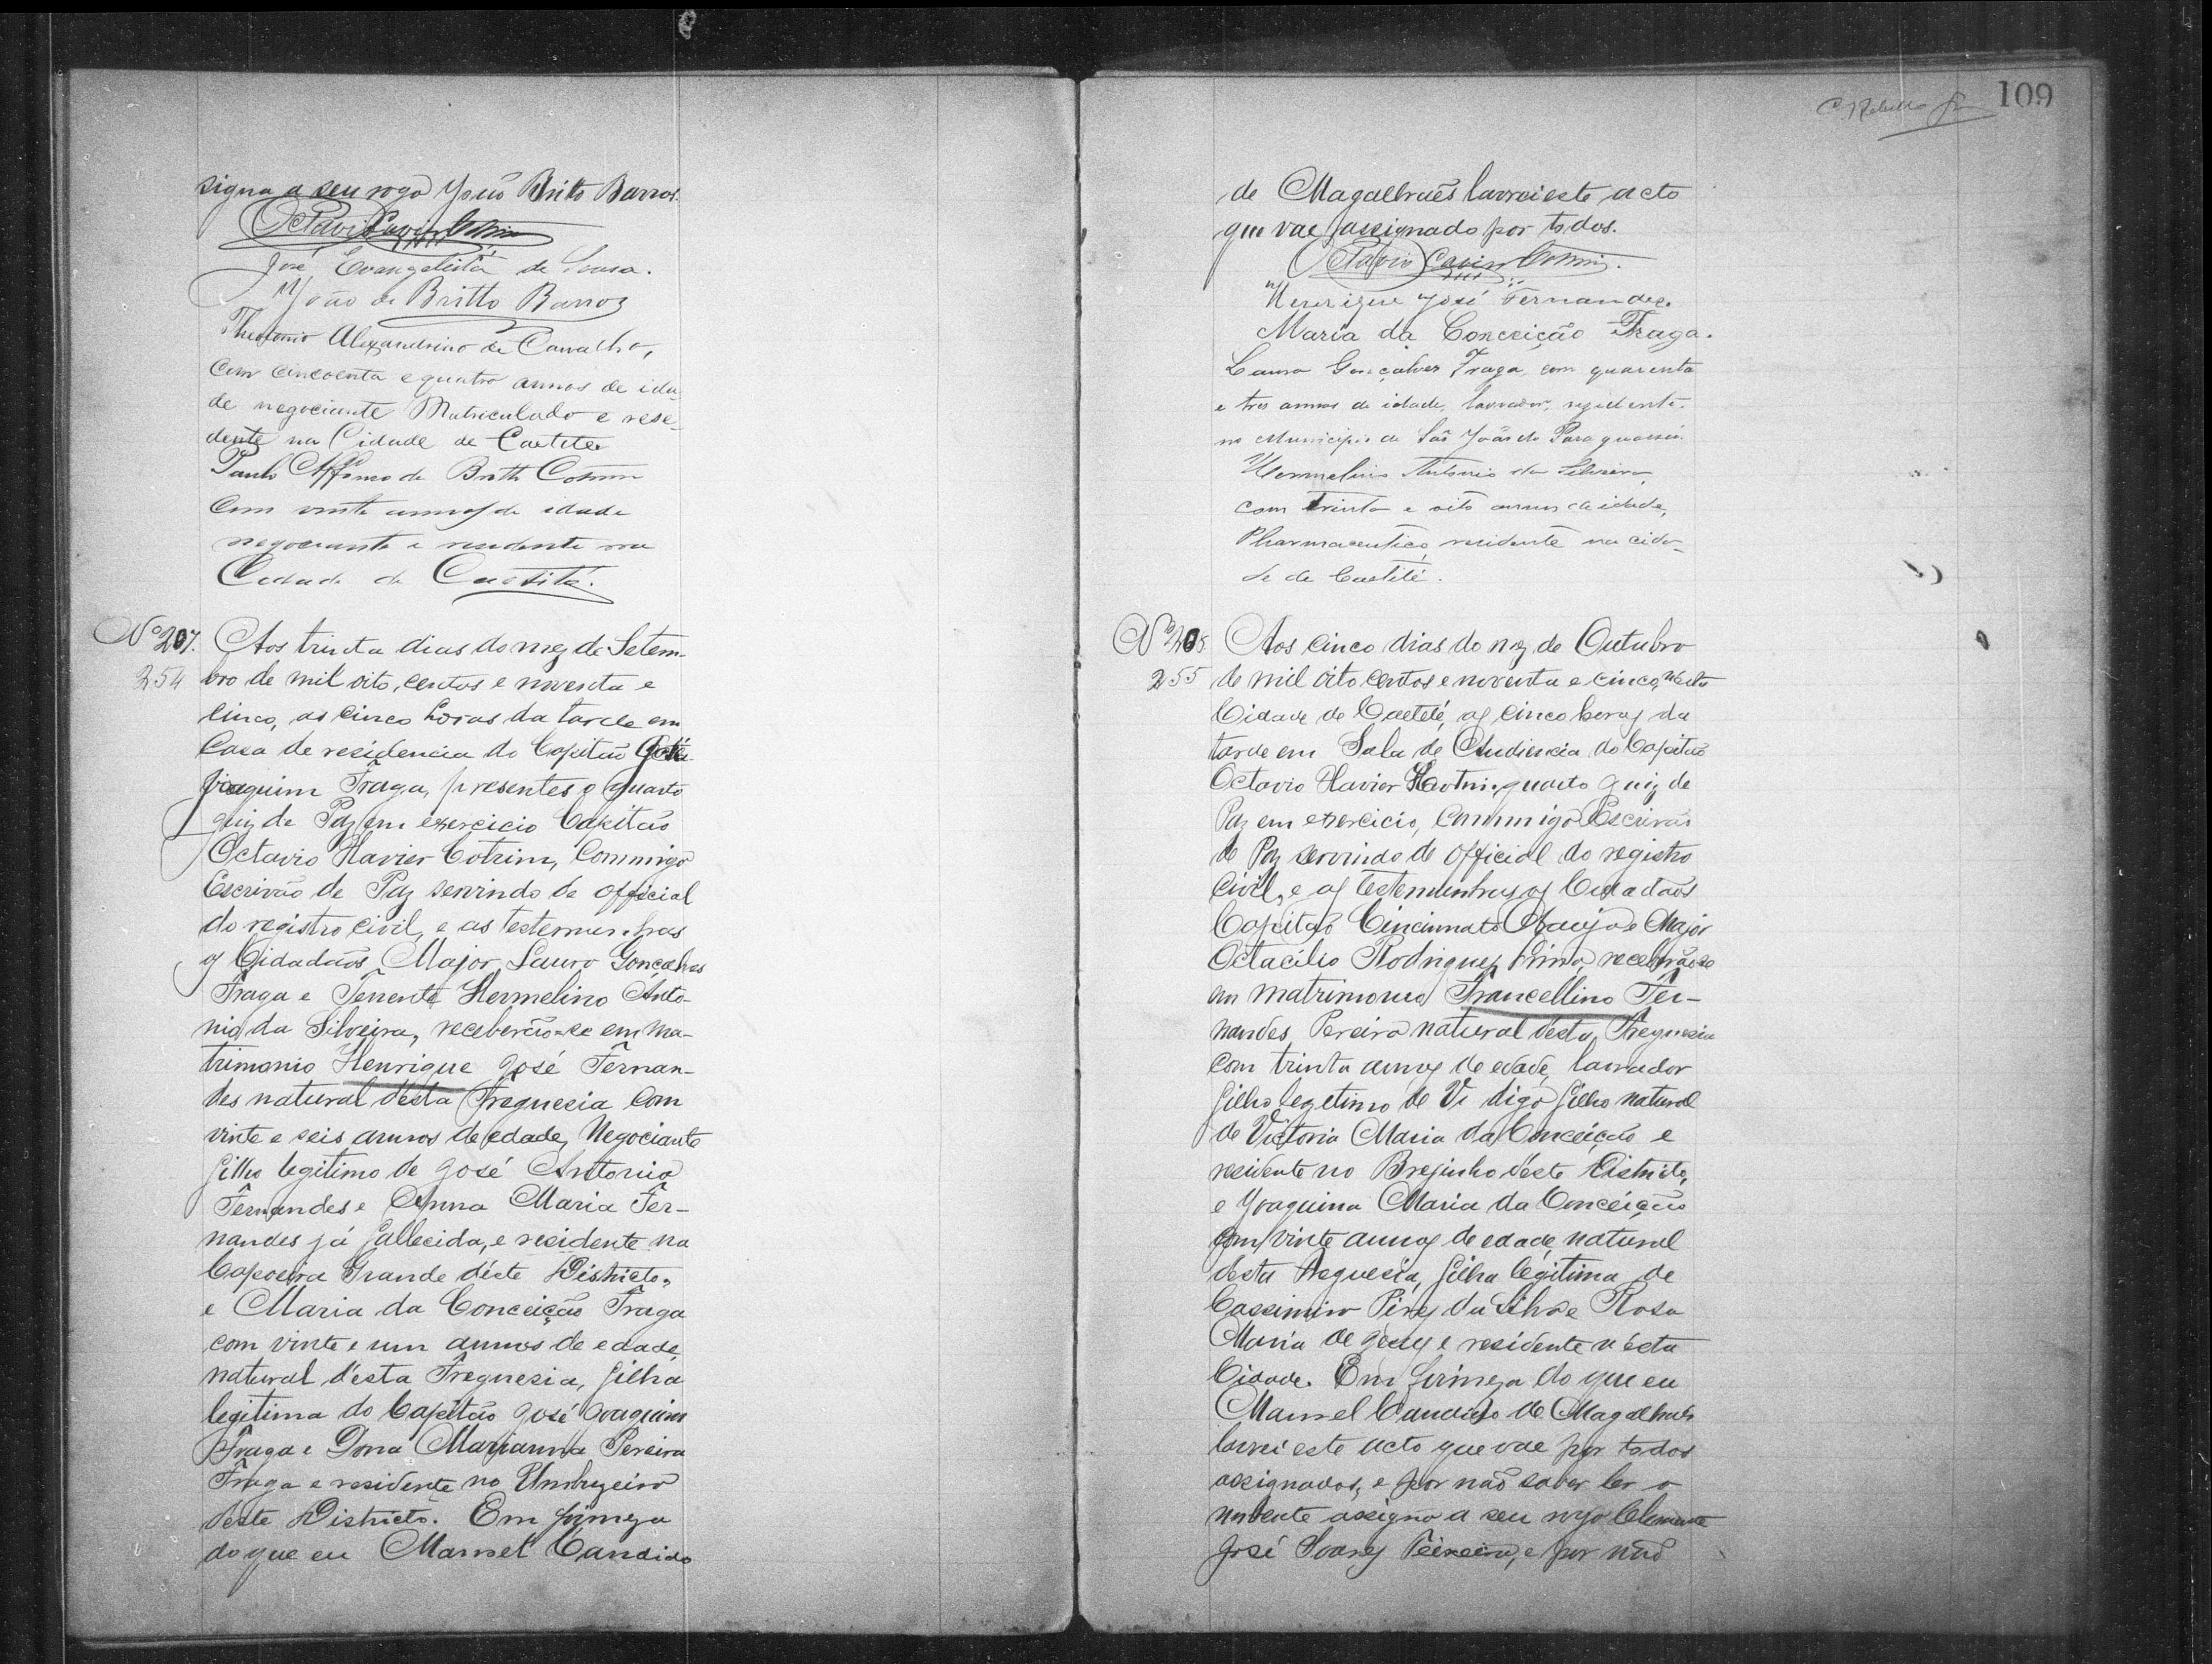 signa a seu rogo João Britto Barros.
Octavio Xavier Cotrim
José Evangelista de Sousa.
João de Britto Barros
Theotonio Alexandrino de Carvalho,
com cincoenta e quatro annos de ida
de negociante Matriculado e rese-
dente na Cidade de Caetité
Paulo Affonso de Britto Cotrim
com vinte annos de idade
negociante e residente na
Cidade de Caetité.
Nº 207.
254
Aos trinta dias do mez de Setem-
bro de mil oito, centos e noventa e
cinco, as cinco horas da tarde em
Casa de residencia do Capitão José
Joaquim Fraga, presentes o quarto
juiz de Paz em exercicio Capitão
Octavio Xavier Cotrim, Commigo
Escrivão de Paz servindo de official
do registro civil, e as testemunhas
os Cidadãos Major Lauro Gonçalves
Fraga e Tenente Hermelino Anto-
nio da Silveira, receberão-se em ma-
trimonio Henrique José Fernan-
des natural désta Freguesia com
vinte e seis annos de edade, Negociante
filho legitimo de José Antonio
Fernandes e Anna Maria Fer-
nandes já fallecida, e residente na
Capoeira Grande déste Districto,
e Maria da Conceição Fraga
com vinte e um annos de edade,
natural d'esta Freguesia, filha
legitima do Capitão José Joaquim
Fraga e Dona Marianna Pereira
Fraga e residente no Umbuzeiro
deste Districto. Em firmeza
do que eu Manoel Candido
109
de Magalhaẽs lavrei este acto
que vae assignado por todos.
Octavio Xavier Cotrim.
Henrique José Fernandes.
Maria da Conceição Fraga.
Lauro Gonçalves Fraga, com quarenta
e tres annos de idade, lavrador, residente
no Municipio de São João do Paraguassú.
Hermelino Antonio da Silveira,
com trinta e oito annos de idade,
Pharmaceutico, residente na cida-
de de Caetité.
Nº 208.
255
Aos cinco dias do mez de Outubro
de mil oito centos e noventa e cinco, nesta
Cidade de Caetité, as cinco horas da
tarde em Sala de Audiencia do Capitão
Octavio Xavier Cotrim, quarto juiz de
Paz em exercicio, Commigo Escrivão
de Paz servindo de official do registro
Civil, e as testemunhas os Cidadãos
Capitão Cincinnato Araujo e Major
Octacilio Rodrigues Lima, receberão-se
em matrimonio Francellino Fer-
nandes Pereira natural desta Freguesia
com trinta annos de edade, lavrador
filho legetimo de Vi digo filho natural
de Victoria Maria da Conceição e
residente no Brejinho déste Districto,
e Joaquina Maria da Conceição
com vinte annos de edade, natural
desta Freguesia, filha legitima de
Cassimiro Pires da Silva e Rosa
Maria de Jesus e residente nésta
Cidade. Em firmeza do que eu
Manoel Candido de Magalhaẽs
lavrei este acto que vae por todos
assignados, e por não saber ler o
nubente assigna a seu rogo Clemente
José Soares Teixeira, e por não